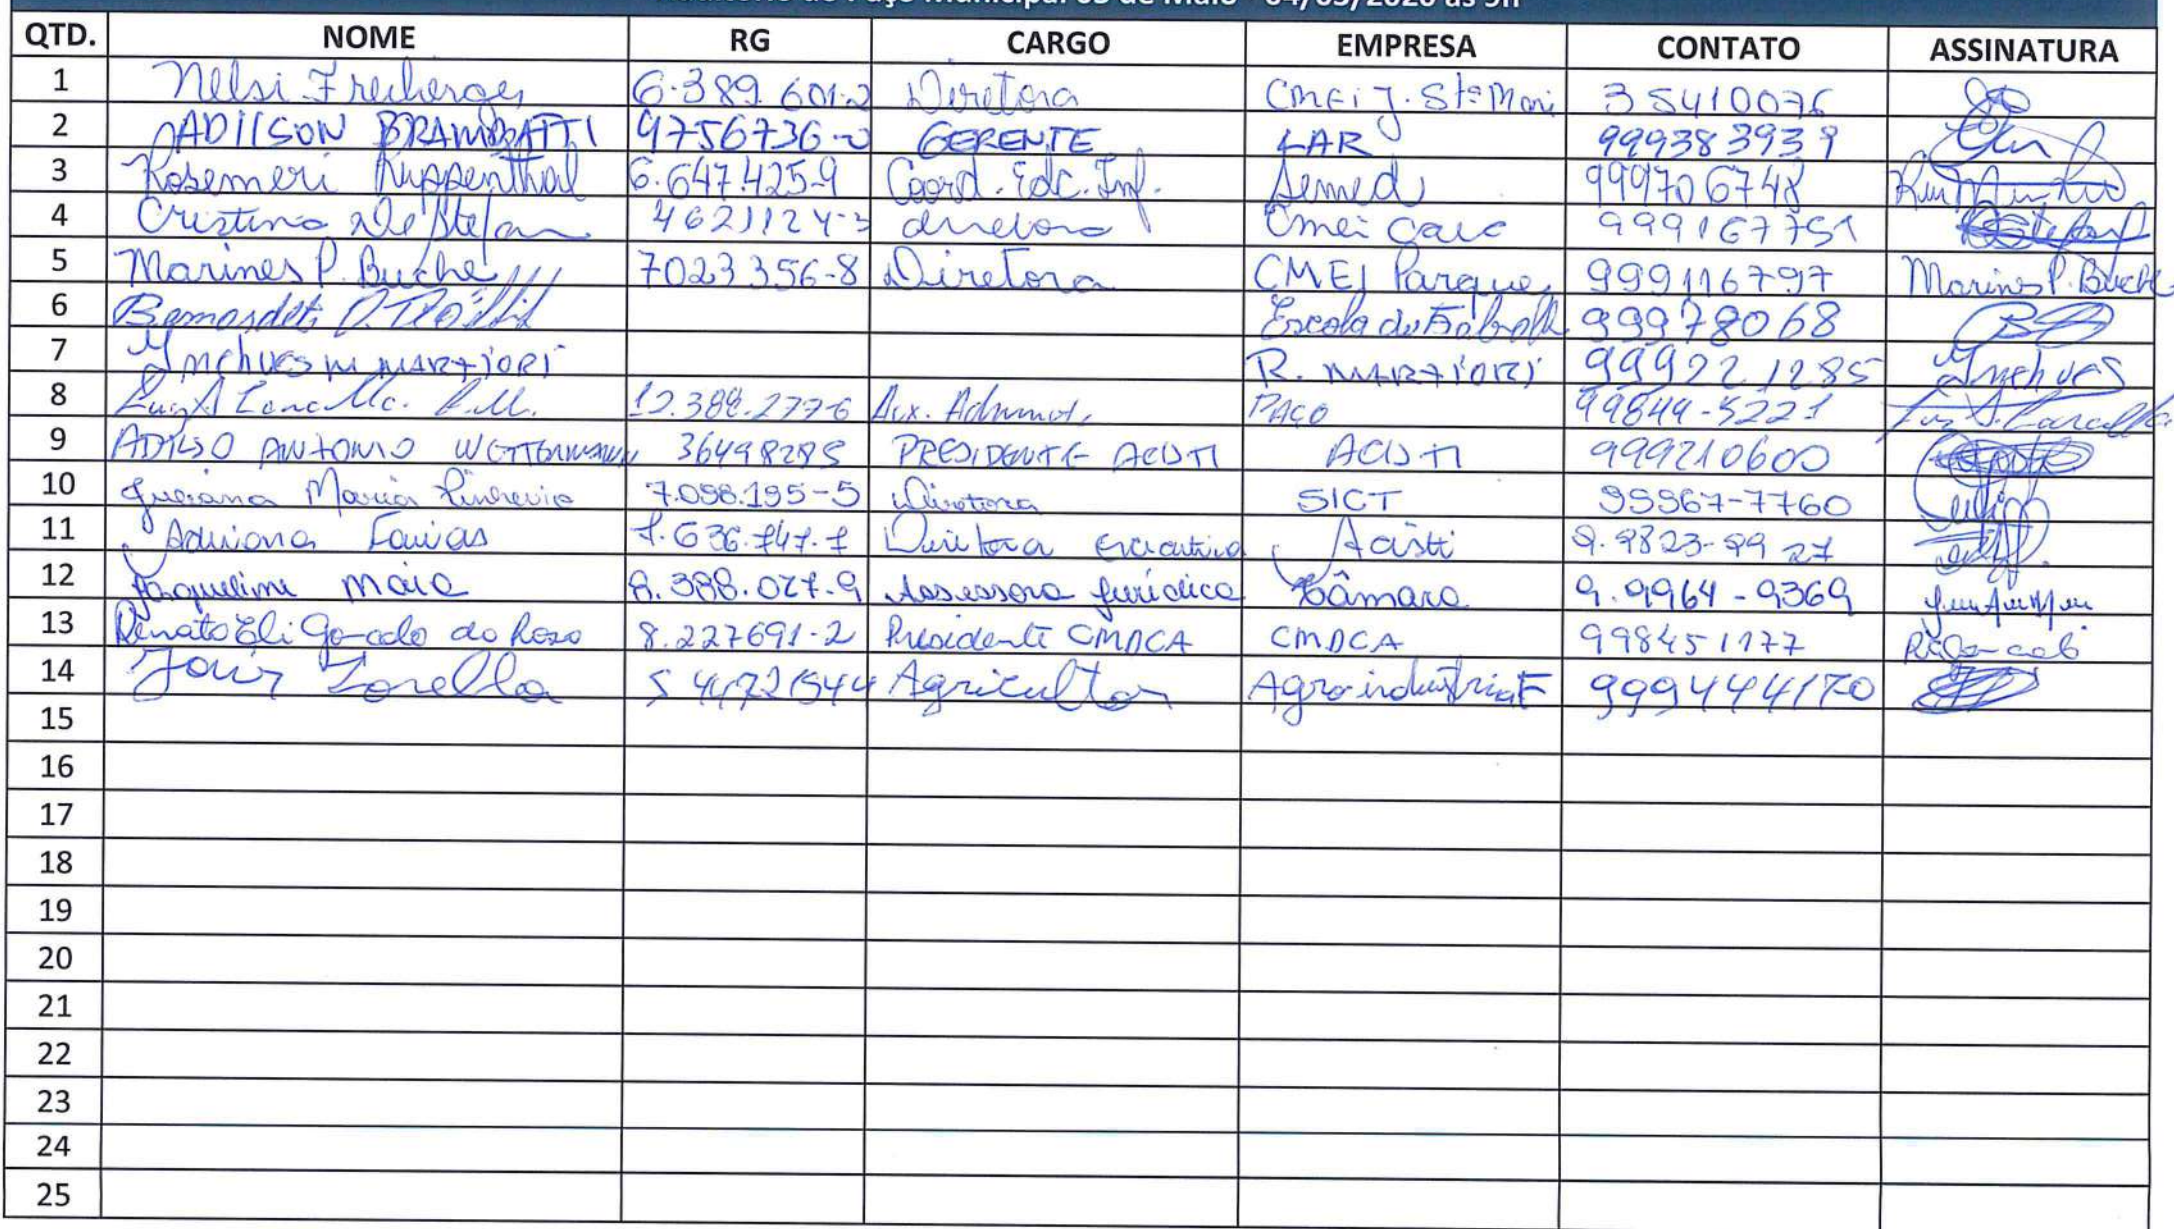 Paço Municipal 03 de Maio - 04/03/2020 às 9h
QTD. NOME RG CARGO EMPRESA CONTATO ASSINATURA
1 Nelsi Freiberger 6.389.601-2 Diretora CMEi J. Stª Mari 35410076
2 ADILSON 9756736- GERENTE LAR 999383939
3 Rosemeri Kuppenthal 6.647.425-9 Coord. Edc. Inf. Semed 999706748
4 Cristina De Stefan 4621124-3 diretora Cmei Caic 999167751
5 Marines P. Buche 7023356-8 Diretora CMEI Parque 999116797 Marines P. Buche
6 Escola do 99978068
7 MARZIORI R. MARZIORI 999221285
8 Aux. Administ. PAÇO 99849-5221
9 ADILSO ANTONIO 36498285 PRESIDENTE ACISTI ACISTI 999210600
10 Juliana Maria Pinheiro 7.098.195-5 Diretora SICT 99967-7760
11 Adriana Farias 7.636.747-7 Diretora executiva Acisti 9.9823-9927
12 Jaqueline Maia 8.388.027-9 Assessora Jurídica Câmara 9.9964-9369
13 Renato Eli do Roso 8.227691-2 Presidente CMDCA CMDCA 998451177
14 Jair Zorella Agricultor Agroindustria 999444170
15
16
17
18
19
20
21
22
23
24
25